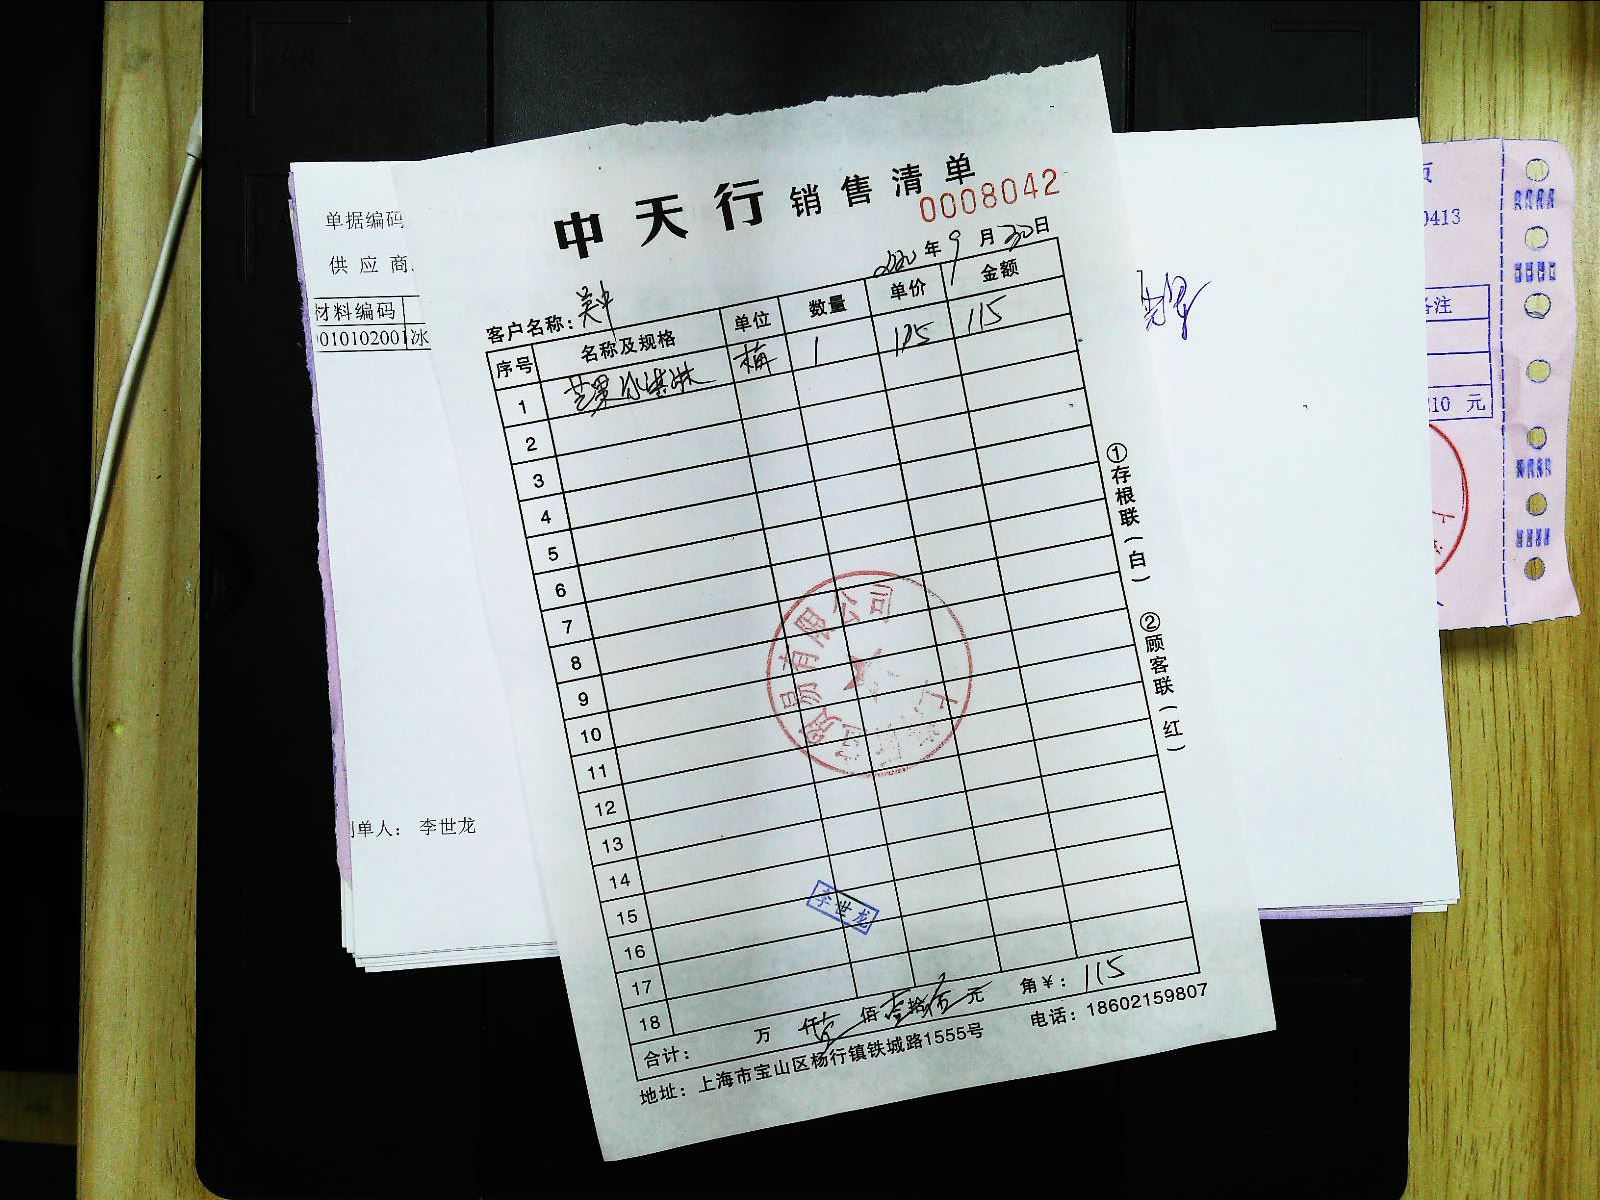 中天行 销售清单
0008042
2020年9月30日
客户名称：吴中
序号 名称及规格 单位 数量 单价 金额
1 芒果冰淇淋 1 115 115
2
3
4
5
6
7
8
9
10
11
12
13
14
15
16
17
18
李世龙
合计： 万 仟 壹佰壹拾伍元 角 ￥：115
地址：上海市宝山区杨行镇铁城路1555号 电话：18602159807
①存根联（白） ②顾客联（红）
贸易有限公司
单据编码
供应商
材料编码
010102001 冰
制单人： 李世龙
0413
备注
210 元